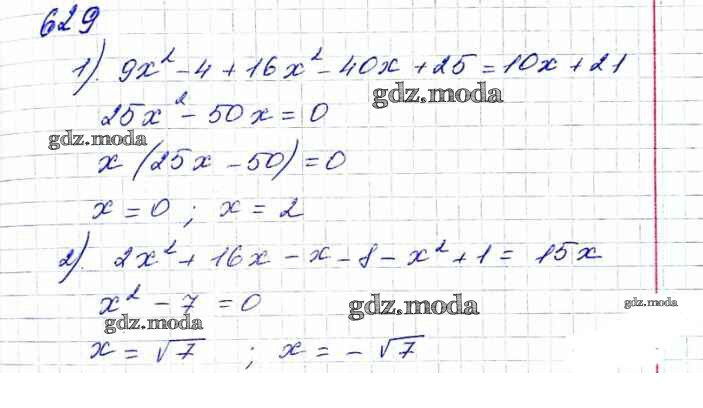 629
1). 9x² - 4 + 16x² - 40x + 25 = 10x + 21
gdz.moda
25x² - 50x = 0
gdz.moda
x (25x - 50) = 0
x = 0 ; x = 2
2). 2x² + 16x - x - 8 - x² + 1 = 15x
x² - 7 = 0
gdz.moda
gdz.moda
gdz.moda
x = √7 ; x = - √7